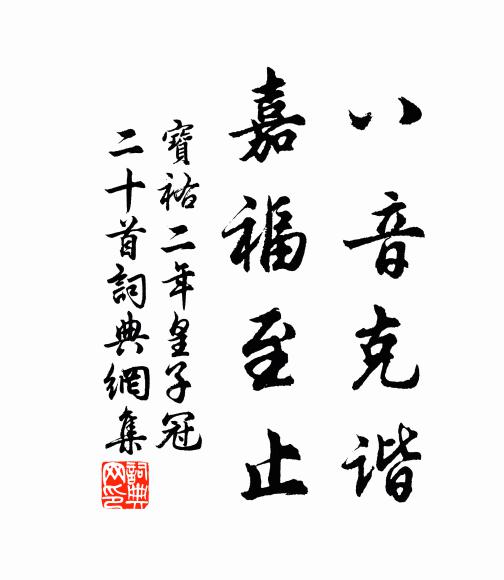 八音克谐
嘉福至止
寶祐二年皇子冠
二十首詞典網集
詞典网印